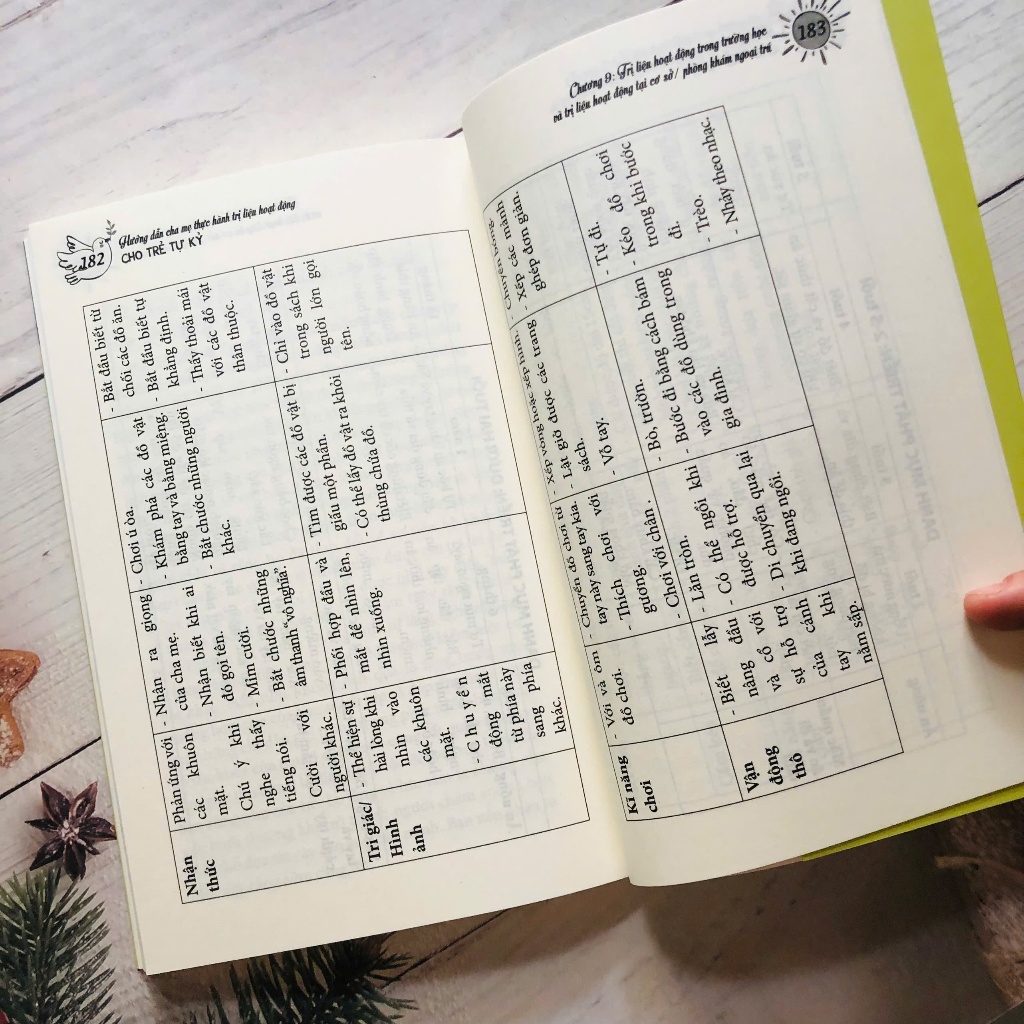 182
Hướng dẫn cha mẹ thực hành trị liệu hoạt động
CHO TRẺ TỰ KỶ
Nhận
thức
Phản ứng với
các khuôn
mặt.
Chú ý khi
nghe thấy
tiếng nói.
Cười với
người khác.
- Nhận ra giọng
của cha mẹ.
- Nhận biết khi ai
đó gọi tên.
- Mỉm cười.
- Bắt chước những
âm thanh “vô nghĩa”.
- Chơi ú òa.
- Khám phá các đồ vật
bằng tay và bằng miệng.
- Bắt chước những người
khác.
- Bắt đầu biết từ
chối các đồ ăn.
- Bắt đầu biết tự
khẳng định.
- Thấy thoải mái
với các đồ vật
thân thuộc.
Tri giác/
Hình
ảnh
- Thể hiện sự
hài lòng khi
nhìn vào
các khuôn
mặt.
- Chuyển
động mắt
từ phía này
sang phía
khác.
- Phối hợp đầu và
mắt để nhìn lên,
nhìn xuống.
- Tìm được các đồ vật bị
giấu một phần.
- Có thể lấy đồ vật ra khỏi
thùng chứa đồ.
- Chỉ vào đồ vật
trong sách khi
người lớn gọi
tên.
Chương 9: Trị liệu hoạt động trong trường học
và trị liệu hoạt động tại cơ sở/ phòng khám ngoại trú
183
Kĩ năng
chơi
- Với và ôm
đồ chơi.
- Chuyển đồ chơi từ
tay này sang tay kia.
- Thích chơi với
gương.
- Chơi với chân .
- Xếp vòng hoặc xếp hình.
- Lật giở được các trang
sách.
- Vỗ tay.
- Chuyền bóng.
- Xếp các mảnh
ghép đơn giản.
Vận
động
thô
- Biết lẫy
nâng đầu
và cổ với
sự hỗ trợ
của cánh
tay khi
nằm sấp.
- Lăn tròn.
- Có thể ngồi khi
được hỗ trợ.
- Di chuyển qua lại
khi đang ngồi.
- Bò, trườn.
- Bước đi bằng cách bám
vào các đồ dùng trong
gia đình.
- Tự đi.
- Kéo đồ chơi
trong khi bước
đi.
- Trèo.
- Nhảy theo nhạc.